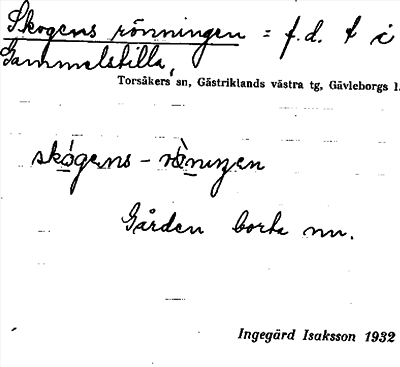 Skogens rönningen = f.d. t i
Gammelstilla,
Torsåkers sn, Gästriklands västra tg, Gävleborgs l.
skógens-rö̀ningen
Gården borta nu.
Ingegärd Isaksson 1932